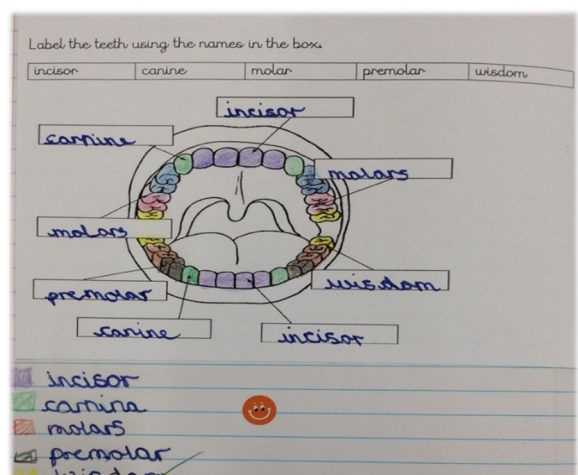 Label the teeth using the names in the box.
incisor canine molar premolar wisdom
incisor
carnine
molars
molars
premolar
wisdom
canine
incisor
incisor
carnina
molars
premolar
wisdom